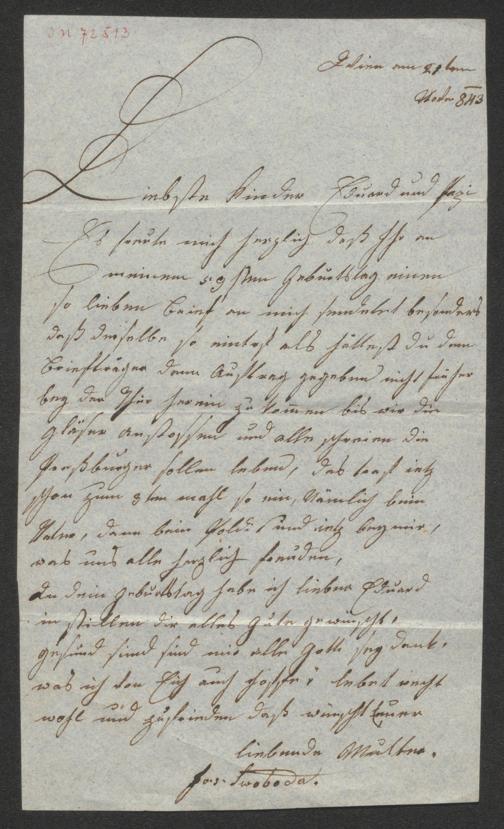 IN 72513
Wien am 21ten
Liebste Kinder Eduard und Pepi
Es freute mich herzlich daß Ihr an
meinem 59sten Geburtstag einen
so lieben Brief an mich sendetet besonders
daß derselbe so eintraf als hättest du dem
Briefträger den Auftrag gegeben nicht früher
bey der Thür herein zu kommen bis wir die
Gläser anstossen und alle schreien die
Preßburger sollen leben, das traf jetz
schon zum 3ten mahl so ein, Nämlich beim
Vater, dann beim Poldi und jetz bey mir,
was uns alle herzlich freuden,
Zu dein Geburtstag habe ich lieber Eduard
im stillen dir alles Gute gewünscht,
gesund sind wir alle Gott sey dank,
was ich von Eich auch hoffe, lebet recht
wohl und zufrieden daß wünscht Euer
liebende Mutter.
Jos: Swoboda.